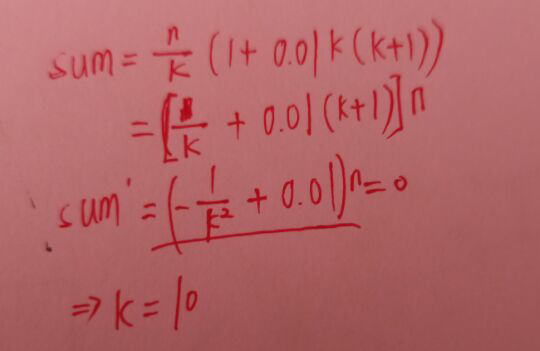 sum = n/k (1 + 0.01k(k+1))
= [1/k + 0.01(k+1)]n
sum' = (-1/k² + 0.01)n = 0
⇒ k = 10